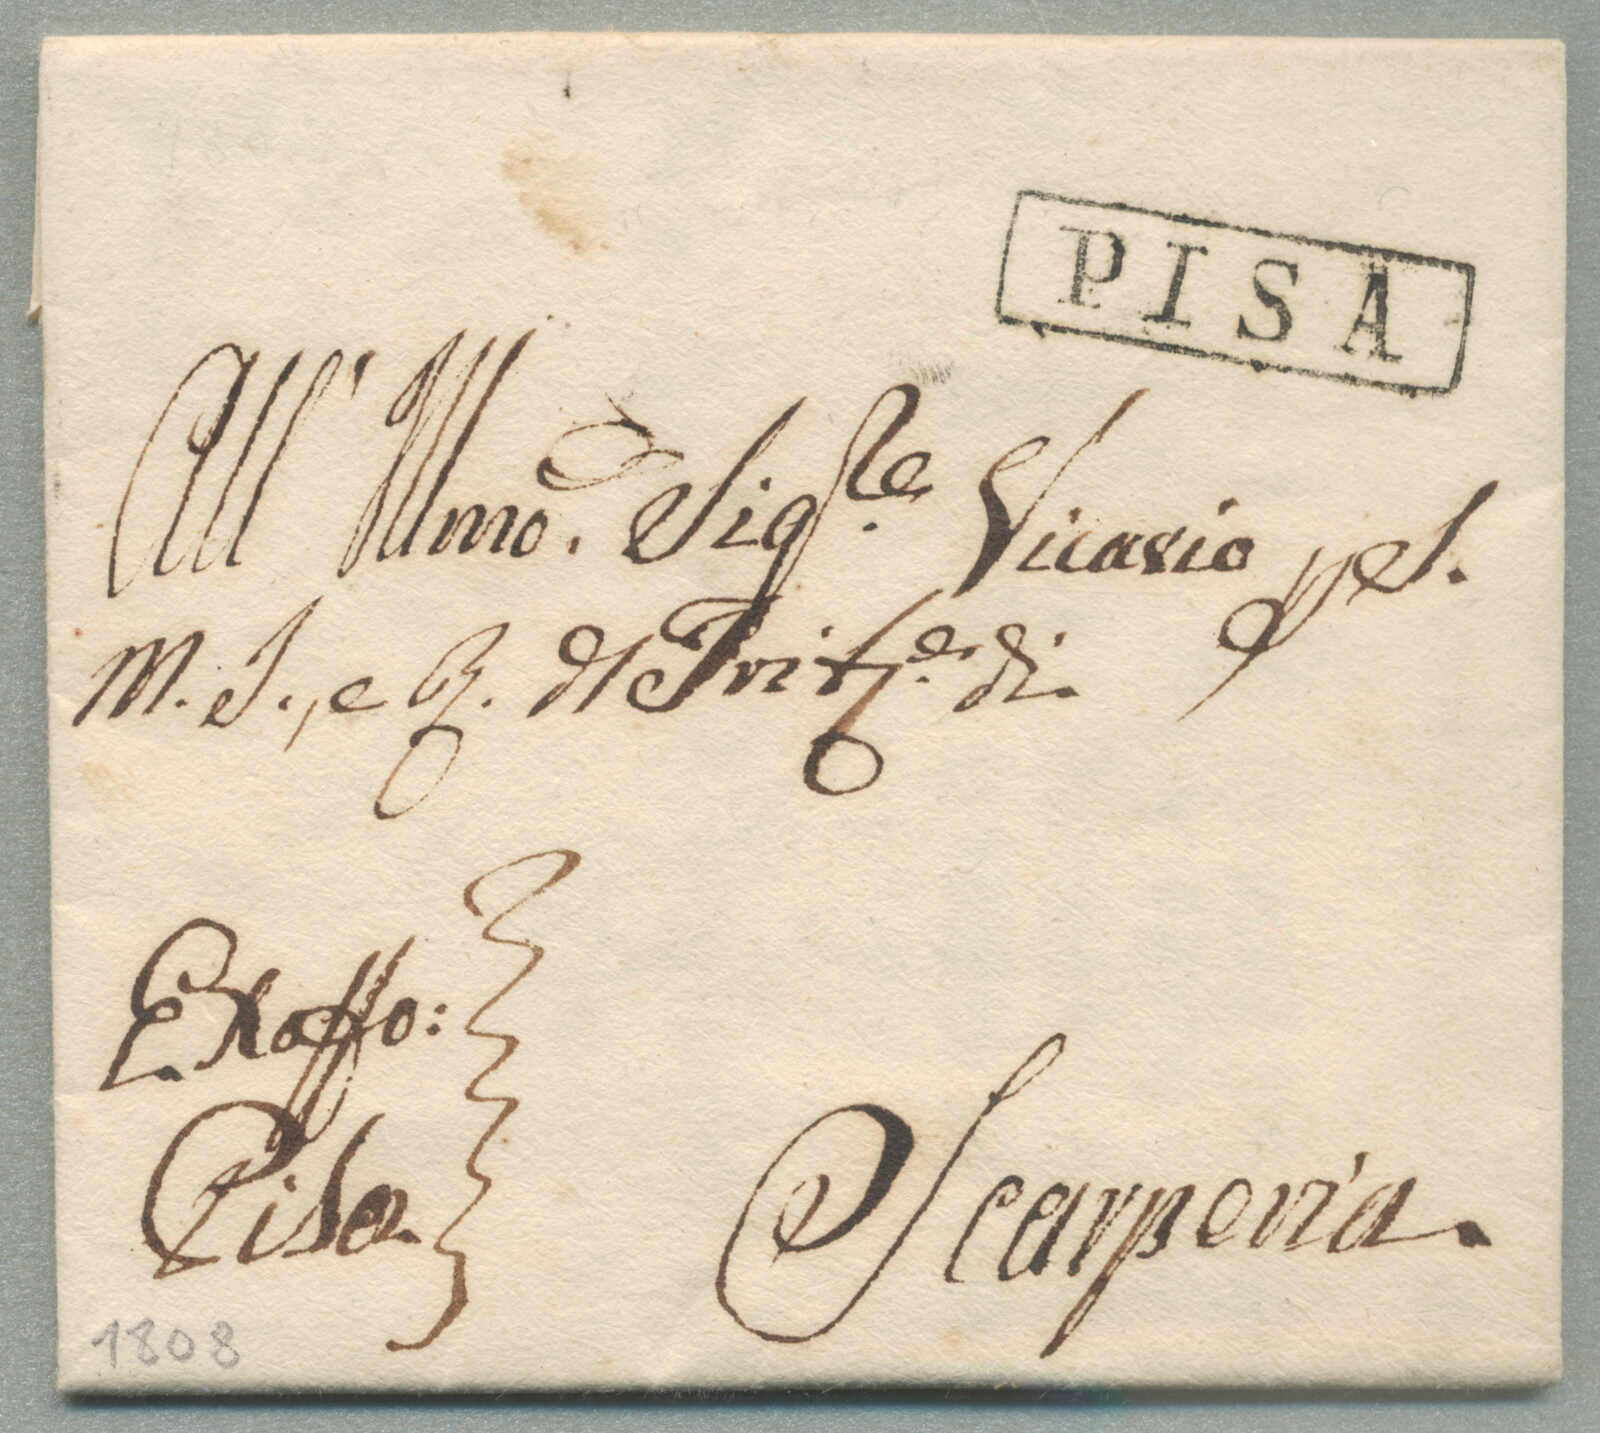 PISA
All' Illmo. Sig.re Vicario pel.
M. I., e R. di
Exoffo:
Pisa.
Scarperia.
1808